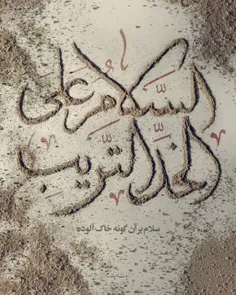 السَّلامُ عَلَی
الخَدِّ التَّریبِ
سلام بر آن گونه خاک آلوده